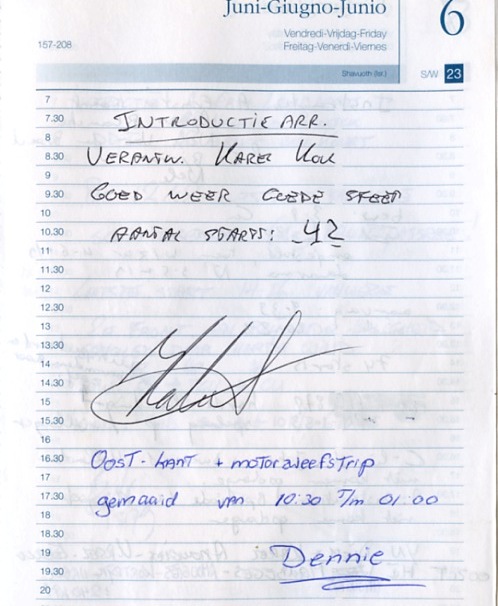 Juni-Giugno-Junio
6
Vendredi-Vrijdag-Friday
Freitag-Venerdi-Viernes
157-208
Shavuoth (Isr.)
S/W 23
7
7.30
INTRODUCTIE ARR.
8
8.30
VERANTW. KAREL KOK
9
9.30
GOED WEER GOEDE SFEER
10
10.30
AANTAL STARTS: 42
11
11.30
12
12.30
13
13.30
14
14.30
15
15.30
16
16.30
OOST-KANT + motorzweefstrip
17
17.30
gemaaid van 10:30 T/m 01:00
18
18.30
19
Dennie
19.30
20